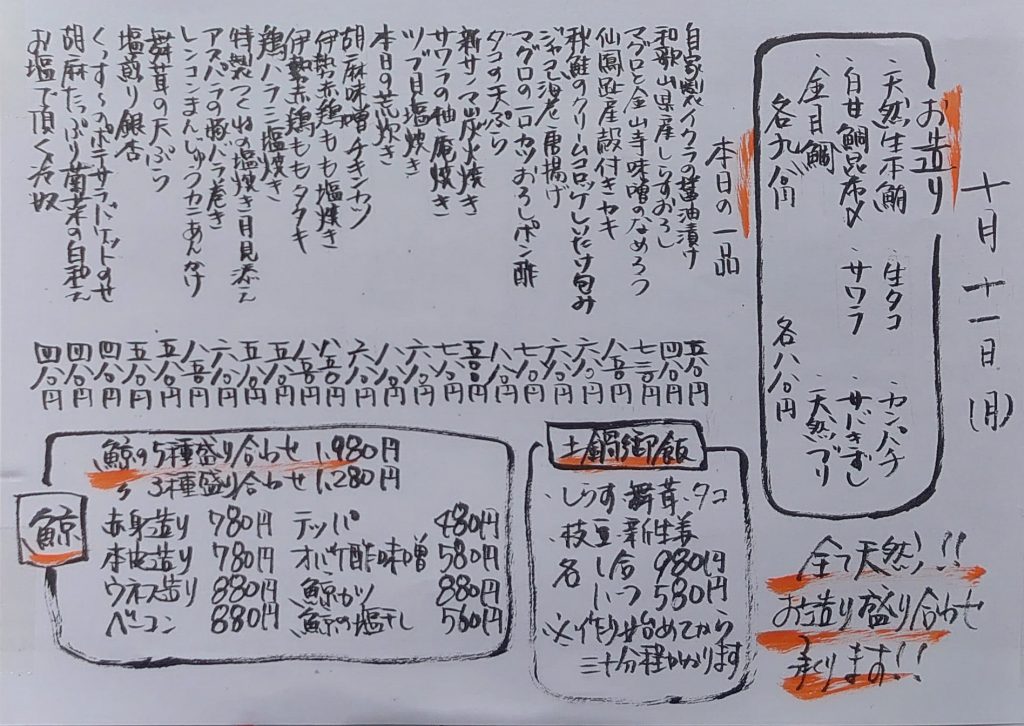 十月十一日(月)
お造り
・天然生本鮪 ・生タコ ・カンパチ
・白甘鯛昆布〆 ・サワラ ・サバきずし
・金目鯛 ・天然ブリ
各九八〇円 各八八〇円
全て天然!!
お造り盛り合わせ
承ります!!
本日の一品
自家製イクラの醤油漬け
和歌山県産しらすおろし
マグロと金山寺味噌のなめろう
仙鳳趾産殻付きカキ
秋鮭のクリームコロッケしいたけ包み
ジャコ海老唐揚げ
マグロの一口カツおろしポン酢
タコの天ぷら
新サンマ炭火焼き
サワラの柚庵焼き
ツブ貝塩焼き
本日の荒炊き
胡麻味噌チキンカツ
伊勢赤鶏もも塩焼き
伊勢赤鶏ももタタキ
鶏ハラミ塩焼き
特製つくねの塩焼き月見添え
アスパラの豚バラ巻き
レンコンまんじゅうカニあんかけ
舞茸の天ぷら
塩煎り銀杏
くっすんのポテサラバケットのせ
胡麻たっぷり菊菜の白和え
お塩で頂く冷奴
土鍋御飯
・しらす・舞茸・タコ
・枝豆・新生姜
各 1合 980円
1/2 580円
※作り始めてから
三十分程かかります
鯨
鯨の5種盛り合わせ 1,980円
〃 3種盛り合わせ 1,280円
赤身造り 780円 テッパ 480円
本皮造り 780円 オバケ酢味噌 580円
ウネス造り 880円 鯨カツ 880円
ベーコン 880円 鯨の塩干し 560円